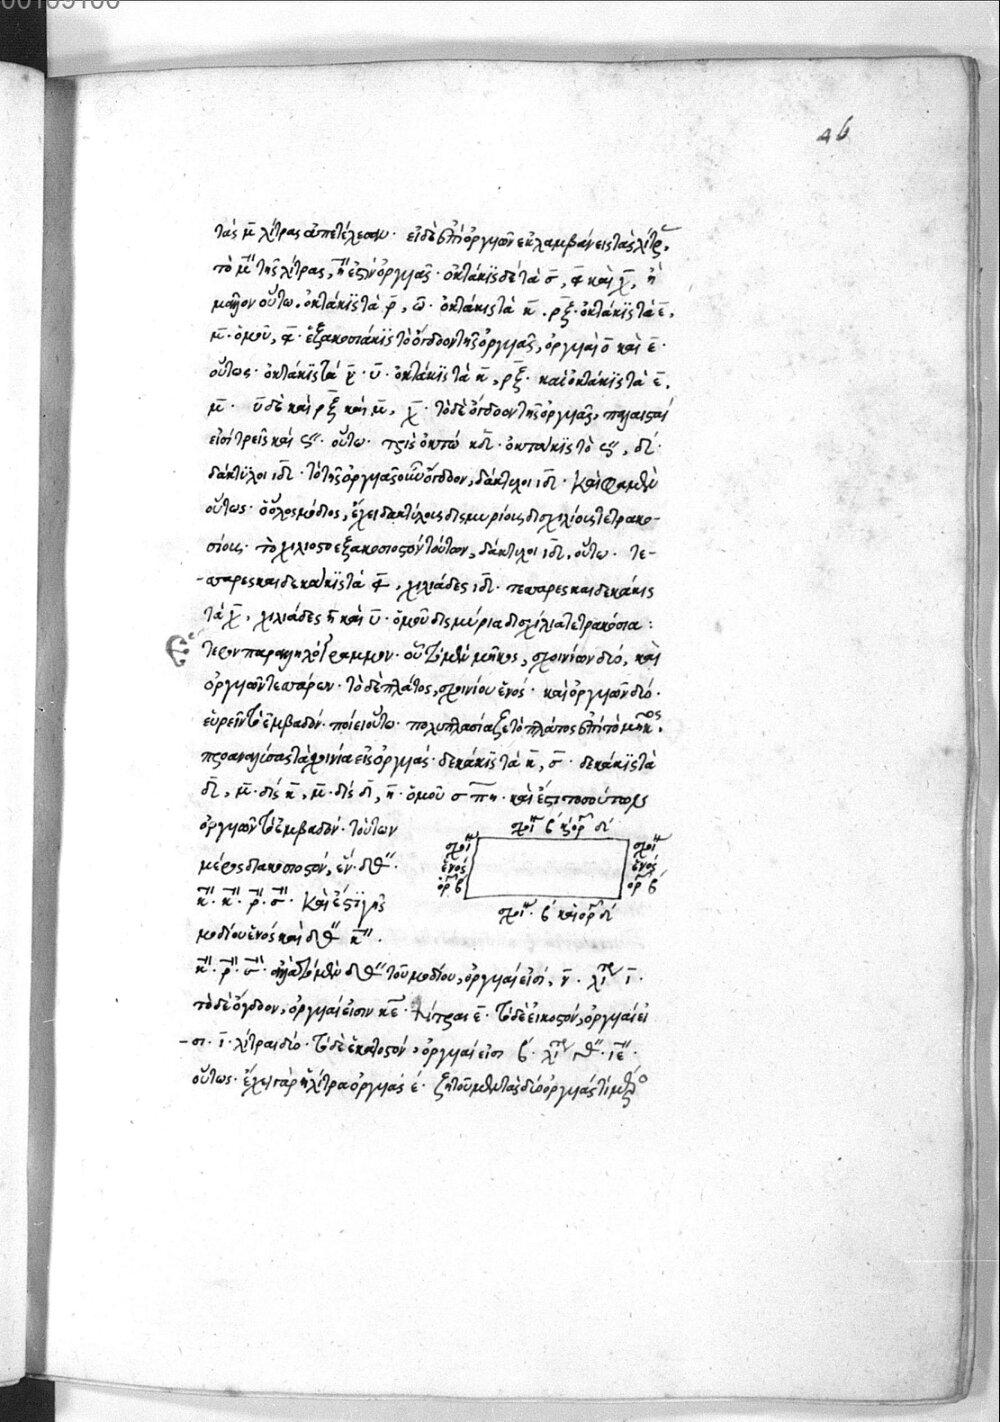 46
τὰς μ̄ λίτρας ἀπετέλεσαν · εἰ δὲ ἐπὶ ὀργυιῶν ἐκλαμβάνεις τὰς λίτρ
τὸ μ̄ʺ τῆς λίτρας, η̄ʺ ἐστὶν ὀργυιᾶς · ὀκτάκις δὲ τὰ σ̄, φ̄ καὶ χ̄, ἢ
μᾶλλον οὕτω · ὀκτάκις τὰ ρ̄, ω̄ · ὀκτάκις τὰ κ̄ · ρξ̄ · ὀκτάκις τὰ ε̄,
μ̄ · ὁμοῦ, · ἑξακοσιάκις τὸ ὄγδοον τῆς ὀργυιᾶς, ὀργυιαὶ ο̄ καὶ ε̄ ·
οὕτως · ὀκτάκις τὰ ν̄ · ῡ · ὀκτάκις τὰ κ̄, ρξ̄ · καὶ ὀκτάκις τὰ ε̄,
μ̄ · ῡ δὲ καὶ ρξ̄ καὶ μ̄, χ̄ · τὸ δὲ ὄγδοον τῆς ὀργυιᾶς, παλαισταί
εἰσι τρεῖς καὶ ςʺ · οὕτω · τρὶς ὀκτὼ κδ̄ · ὀκτάκις τὸ ςʺ, δ̄ ·
δάκτυλοι ιδ̄ · τὸ τῆς ὀργυιᾶς οὖν ὄγδοον, δάκτυλοι ιδ̄ · καὶ φαμὲν
οὕτως · ὁ ὅλος μόδιος, ἔχει δακτύλους δισμυρίους δισχιλίους τετρακο-
σίους · τὸ χιλιοστοεξακοσιοστὸν τούτων, δάκτυλοι ιδ̄, οὕτω · τε-
-σσαρεσκαιδεκάκις τὰ , χιλιάδες ιδ̄ · τεσσαρεσκαιδεκάκις
τὰ χ̄, χιλιάδες η̄ καὶ ῡ · ὁμοῦ δισμύρια δισχίλια τετρακόσια :
Ἕτερον παραλληλόγραμμον · οὗ τὸ μὲν μῆκος, σχοινίων δύο, καὶ
ὀργυιῶν τεσσάρων · τὸ δὲ πλάτος, σχοινίου ἑνός · καὶ ὀργυιῶν δύο ·
εὑρεῖν τὸ ἐμβαδόν · ποίει οὕτω · πολυπλασίαζε τὸ πλάτος ἐπὶ τὸ μῆκος,
προαναλύσας τὰ σχοινία εἰς ὀργυιάς · δεκάκις τὰ κ̄, σ̄ · δεκάκις τὰ
δ̄, μ̄ · δὶς κ̄, μ̄ · δὶς δ̄, η̄ · ὁμοῦ σπη̄ · καὶ ἔστι τοσούτων
ὀργυιῶν τὸ ἐμβαδόν · τούτων
μέρος διακοσιοστόν, ἕν ·
κ̄ʺ · κ̄ʺ · ρ̄ʺ · σ̄ʺ · καὶ ἔστι γῆς
μοδίου ἑνὸς καὶ κ̄ʺ ·
σχοι β καὶ ὀρ δ
σχοι
ἑνὸς
ὀρ β
σχοι
ἑνὸς
ὀρ β
σχοι · β καὶ ὀρ δ
κ̄ʺ · ρ̄ʺ · σ̄ʺ · ἀλλὰ τὸ μὲν τοῦ μοδίου, ὀργυιαί εἰσι, ν̄ · λι ῑ ·
τὸ δὲ ὄγδοον, ὀργυιαί εἰσιν κε̄ · λίτραι ε̄ · τὸ δὲ εἰκοστὸν, ὀργυιαί εἰ
-σι · ῑ · λίτραι δύο · τὸ δὲ ἑκατοστὸν, ὀργυιαί εἰσι β ·
οὕτως · ἔχει γὰρ ἡ λίτρα ὀργυιὰς ε · ζητοῦμεν τὰς δύο ὀργυιὰς τί